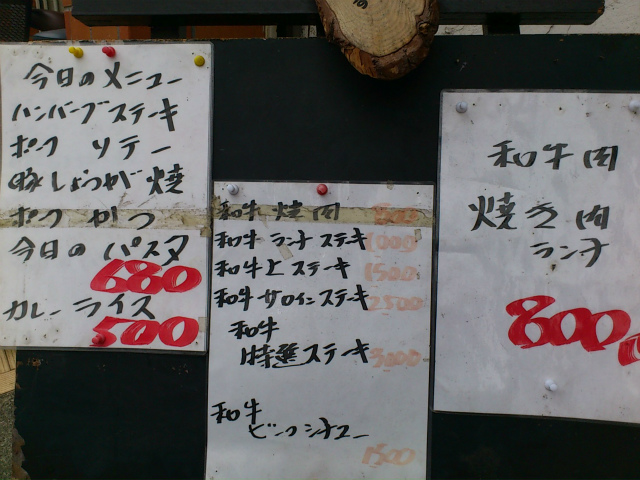 今日のメニュー
ハンバーブステーキ
ポーク ソテー
豚しょうが焼
ポーク かつ
今日の パスタ
680
カレーライス
500
和牛 焼肉 800
和牛 ランチ ステキ 1000
和牛上ステーキ 1500
和牛サロインステーキ 2500
和牛
特選ステーキ 3000
和牛
ビーフシチュー
1500
和牛肉
焼き肉
ランチ
800